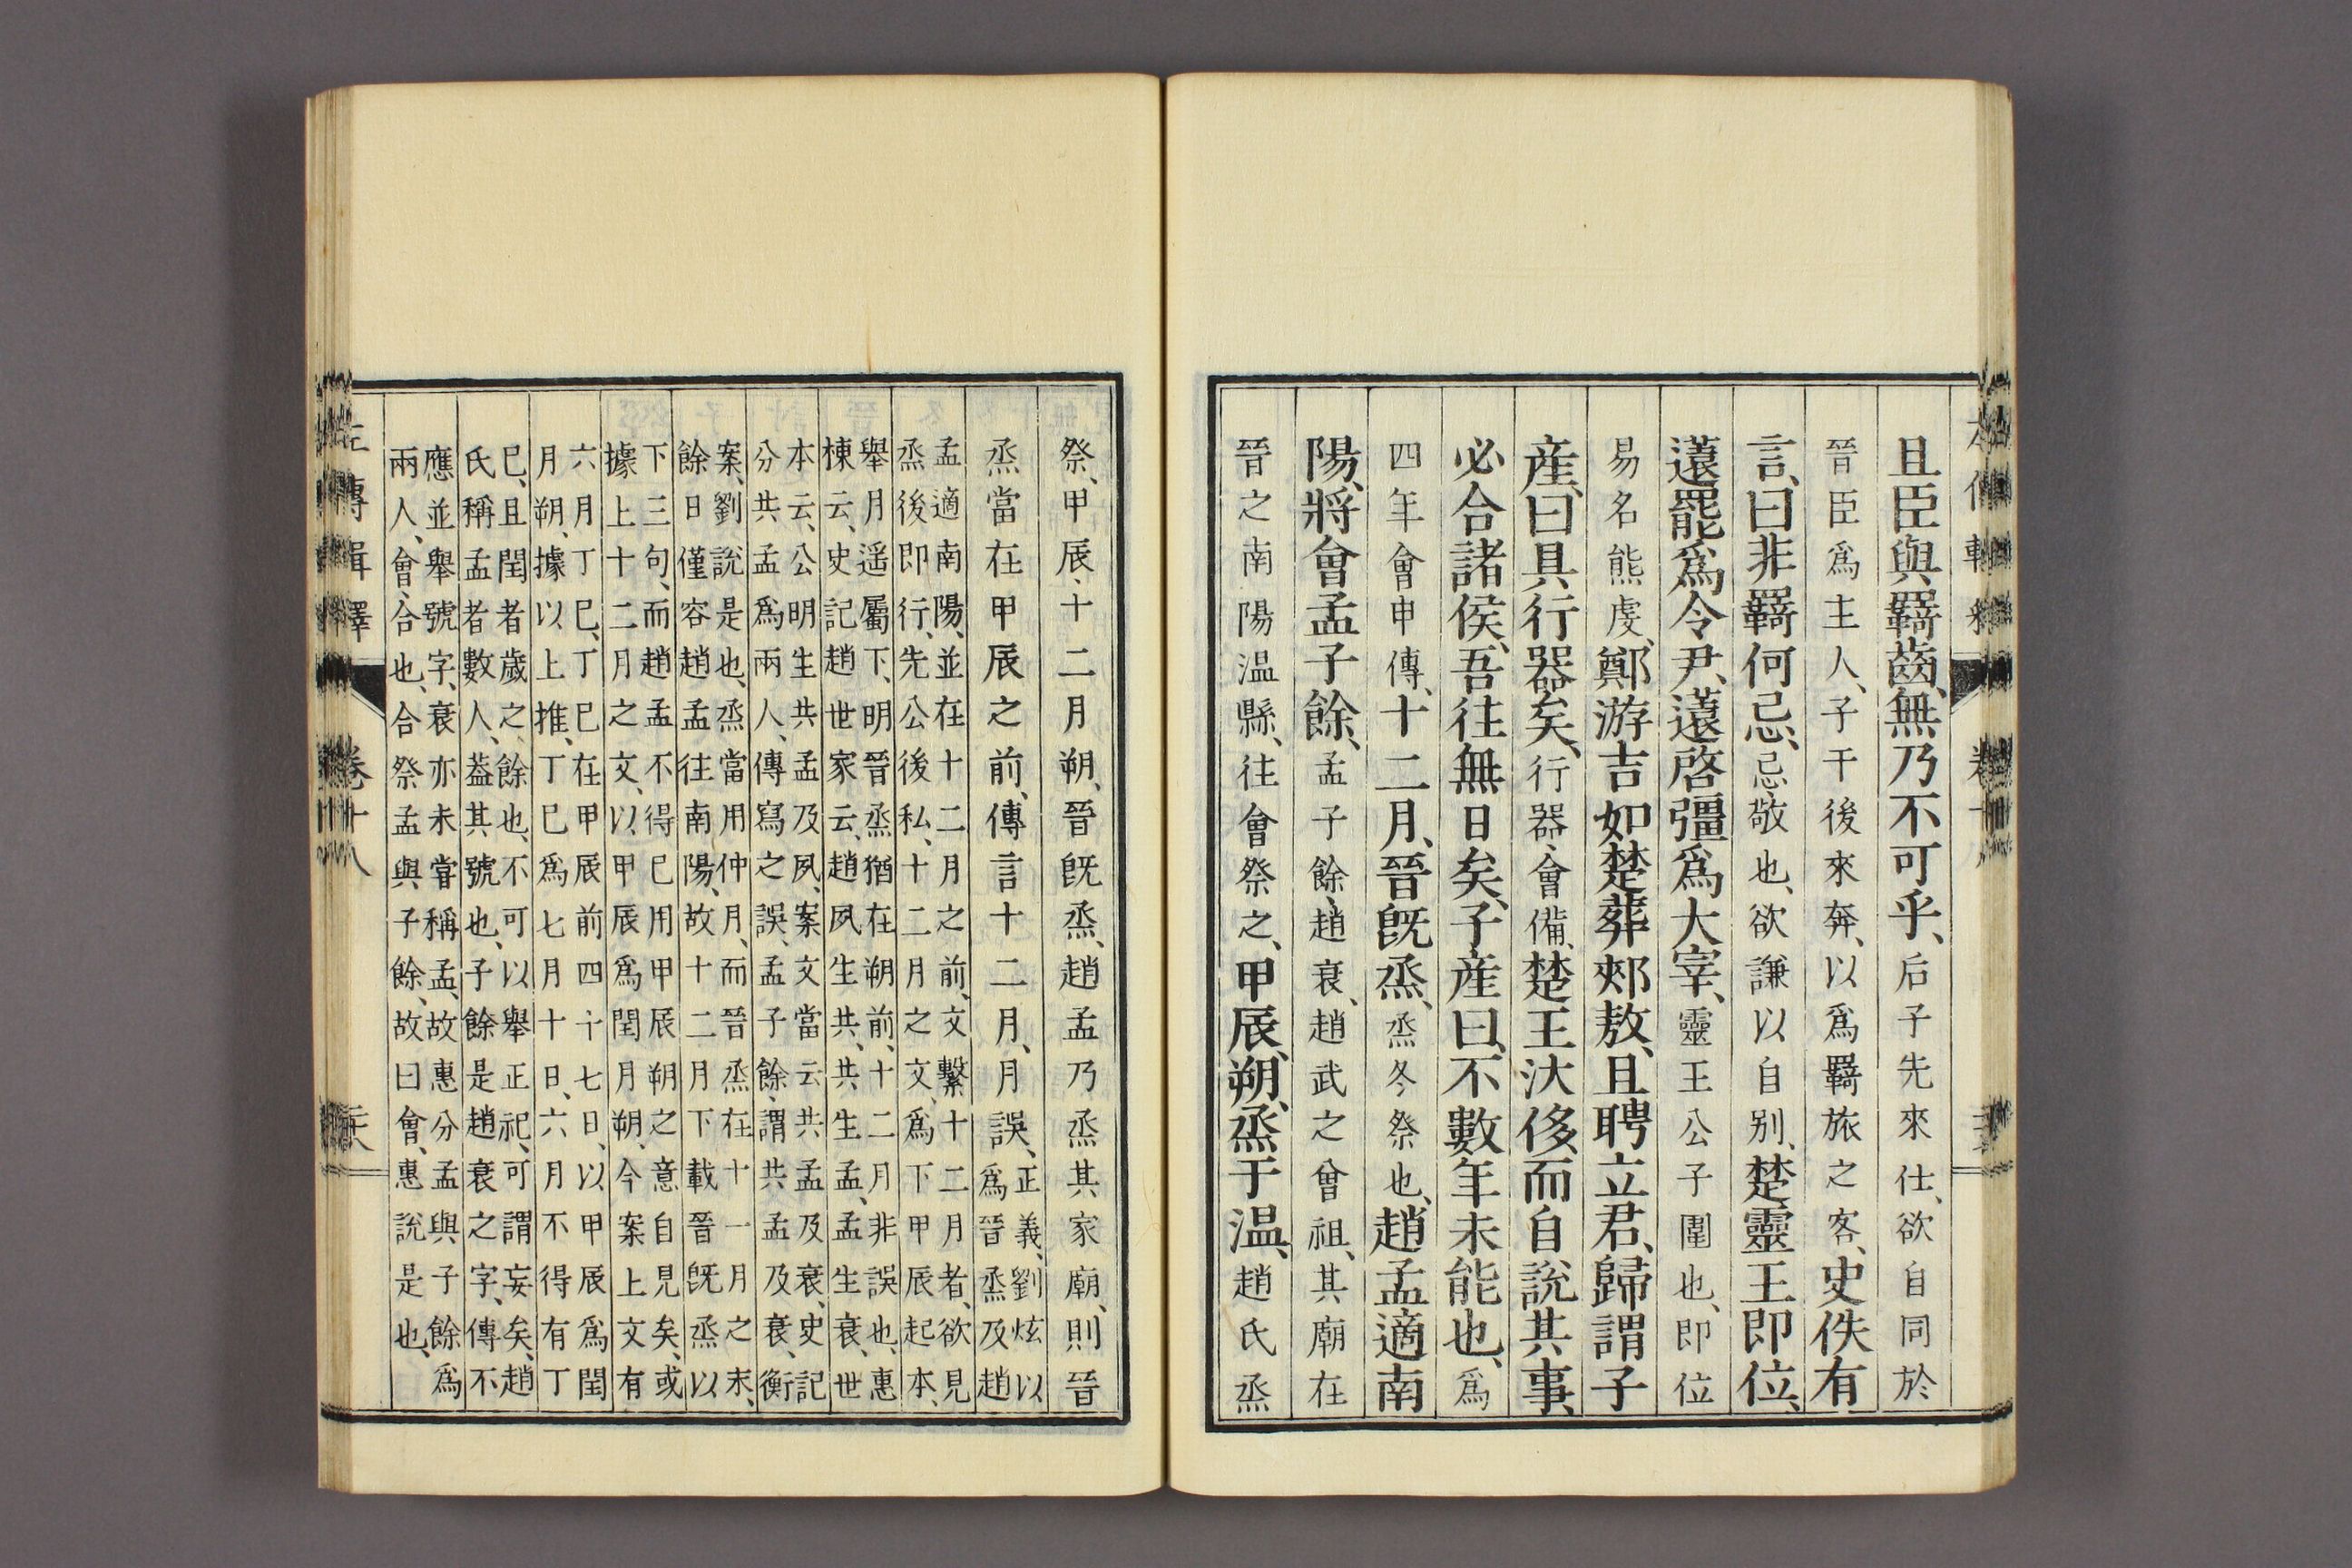 且臣與羇齒、無乃不可乎、后子先來仕、欲自同於
晉臣爲主人、子干後來奔、以爲羇旅之客、史佚有
言、曰非羇何忌、忌敬也、欲謙以自别、楚靈王即位、
薳罷爲令尹、薳啓彊爲大宰、靈王公子圍也、即位
易名熊虔、鄭游吉如楚葬郟敖、且聘立君、歸謂子
産、曰具行器矣、行器、會備、楚王汏侈、而自說其事、
必合諸侯、吾往無日矣、子産曰、不數年未能也、爲
四年會申傳、十二月、晉旣烝、烝冬祭也、趙孟適南
陽、將會孟子餘、孟子餘、趙衰、趙武之曾祖、其廟在
晉之南陽温縣、往會祭之、甲辰、朔、烝于温、趙氏烝
祭、甲辰、十二月朔、晉旣烝、趙孟乃烝其家廟、則晉
烝當在甲辰之前、傳言十二月、月誤、正義、劉炫以
爲晉烝及趙
孟適南陽、並在十二月之前、文繫十二月者、欲見
烝後即行、先公後私、十二月之文、爲下甲辰起本、
舉月遥屬下、明晉烝猶在朔前、十二月非誤也、惠
棟云、史記趙世家云、趙夙生共、共生孟、孟生衰、世
本云、公明生共孟及夙、案文當云共孟及衰、史記
分共孟爲兩人、傳寫之誤、孟子餘、謂共孟及衰、衡
案、劉說是也、烝當用仲月、而晉烝在十一月之末、
餘日僅容趙孟往南陽、故十二月下載晉旣烝以
下三句、而趙孟不得巳用甲辰朔之意自見矣、或
據上十二月之文、以甲辰爲閏月朔、今案上文有
六月丁巳、丁巳在甲辰前四十七日、以甲辰爲閏
月朔、據以上推、丁巳爲七月十日、六月不得有丁
巳、且閏者歲之餘也、不可以舉正祀、可謂妄矣、趙
氏稱孟者數人、葢其號也、子餘是趙衰之字、傳不
應並舉號字、衰亦未甞稱孟、故惠分孟與子餘爲
兩人、會、合也、合祭孟與子餘、故曰會、惠說是也、
左傳輯釋 卷十八